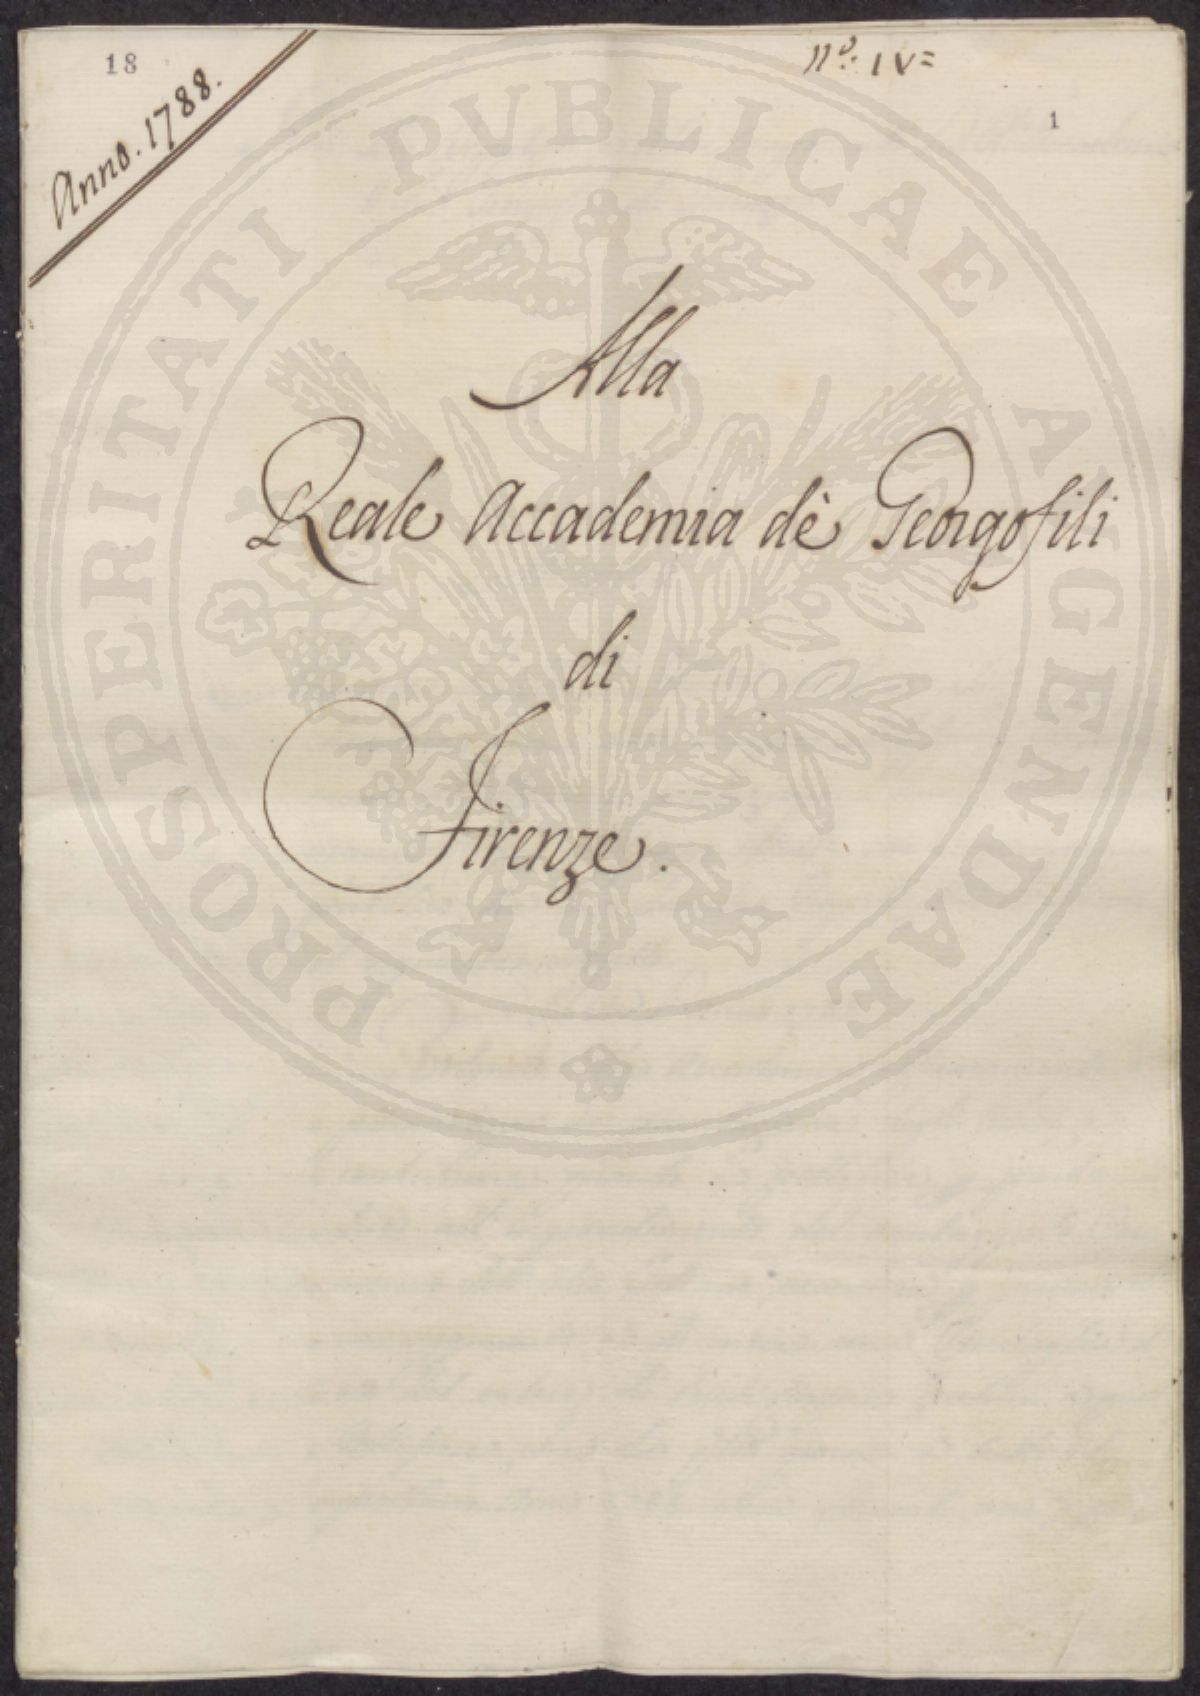 18
Anno. 1788.
N.º IV=
1
PROSPERITATI PVBLICAE AVGENDAE
Alla
Reale Accademia dè Georgofili
di
Firenze.